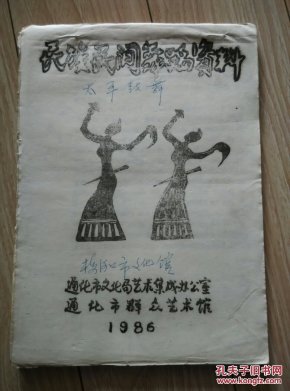 民族民间舞蹈资料
太平鼓舞
梅河口市文化馆
通化市文化局艺术集成办公室
通化市群众艺术馆
1986